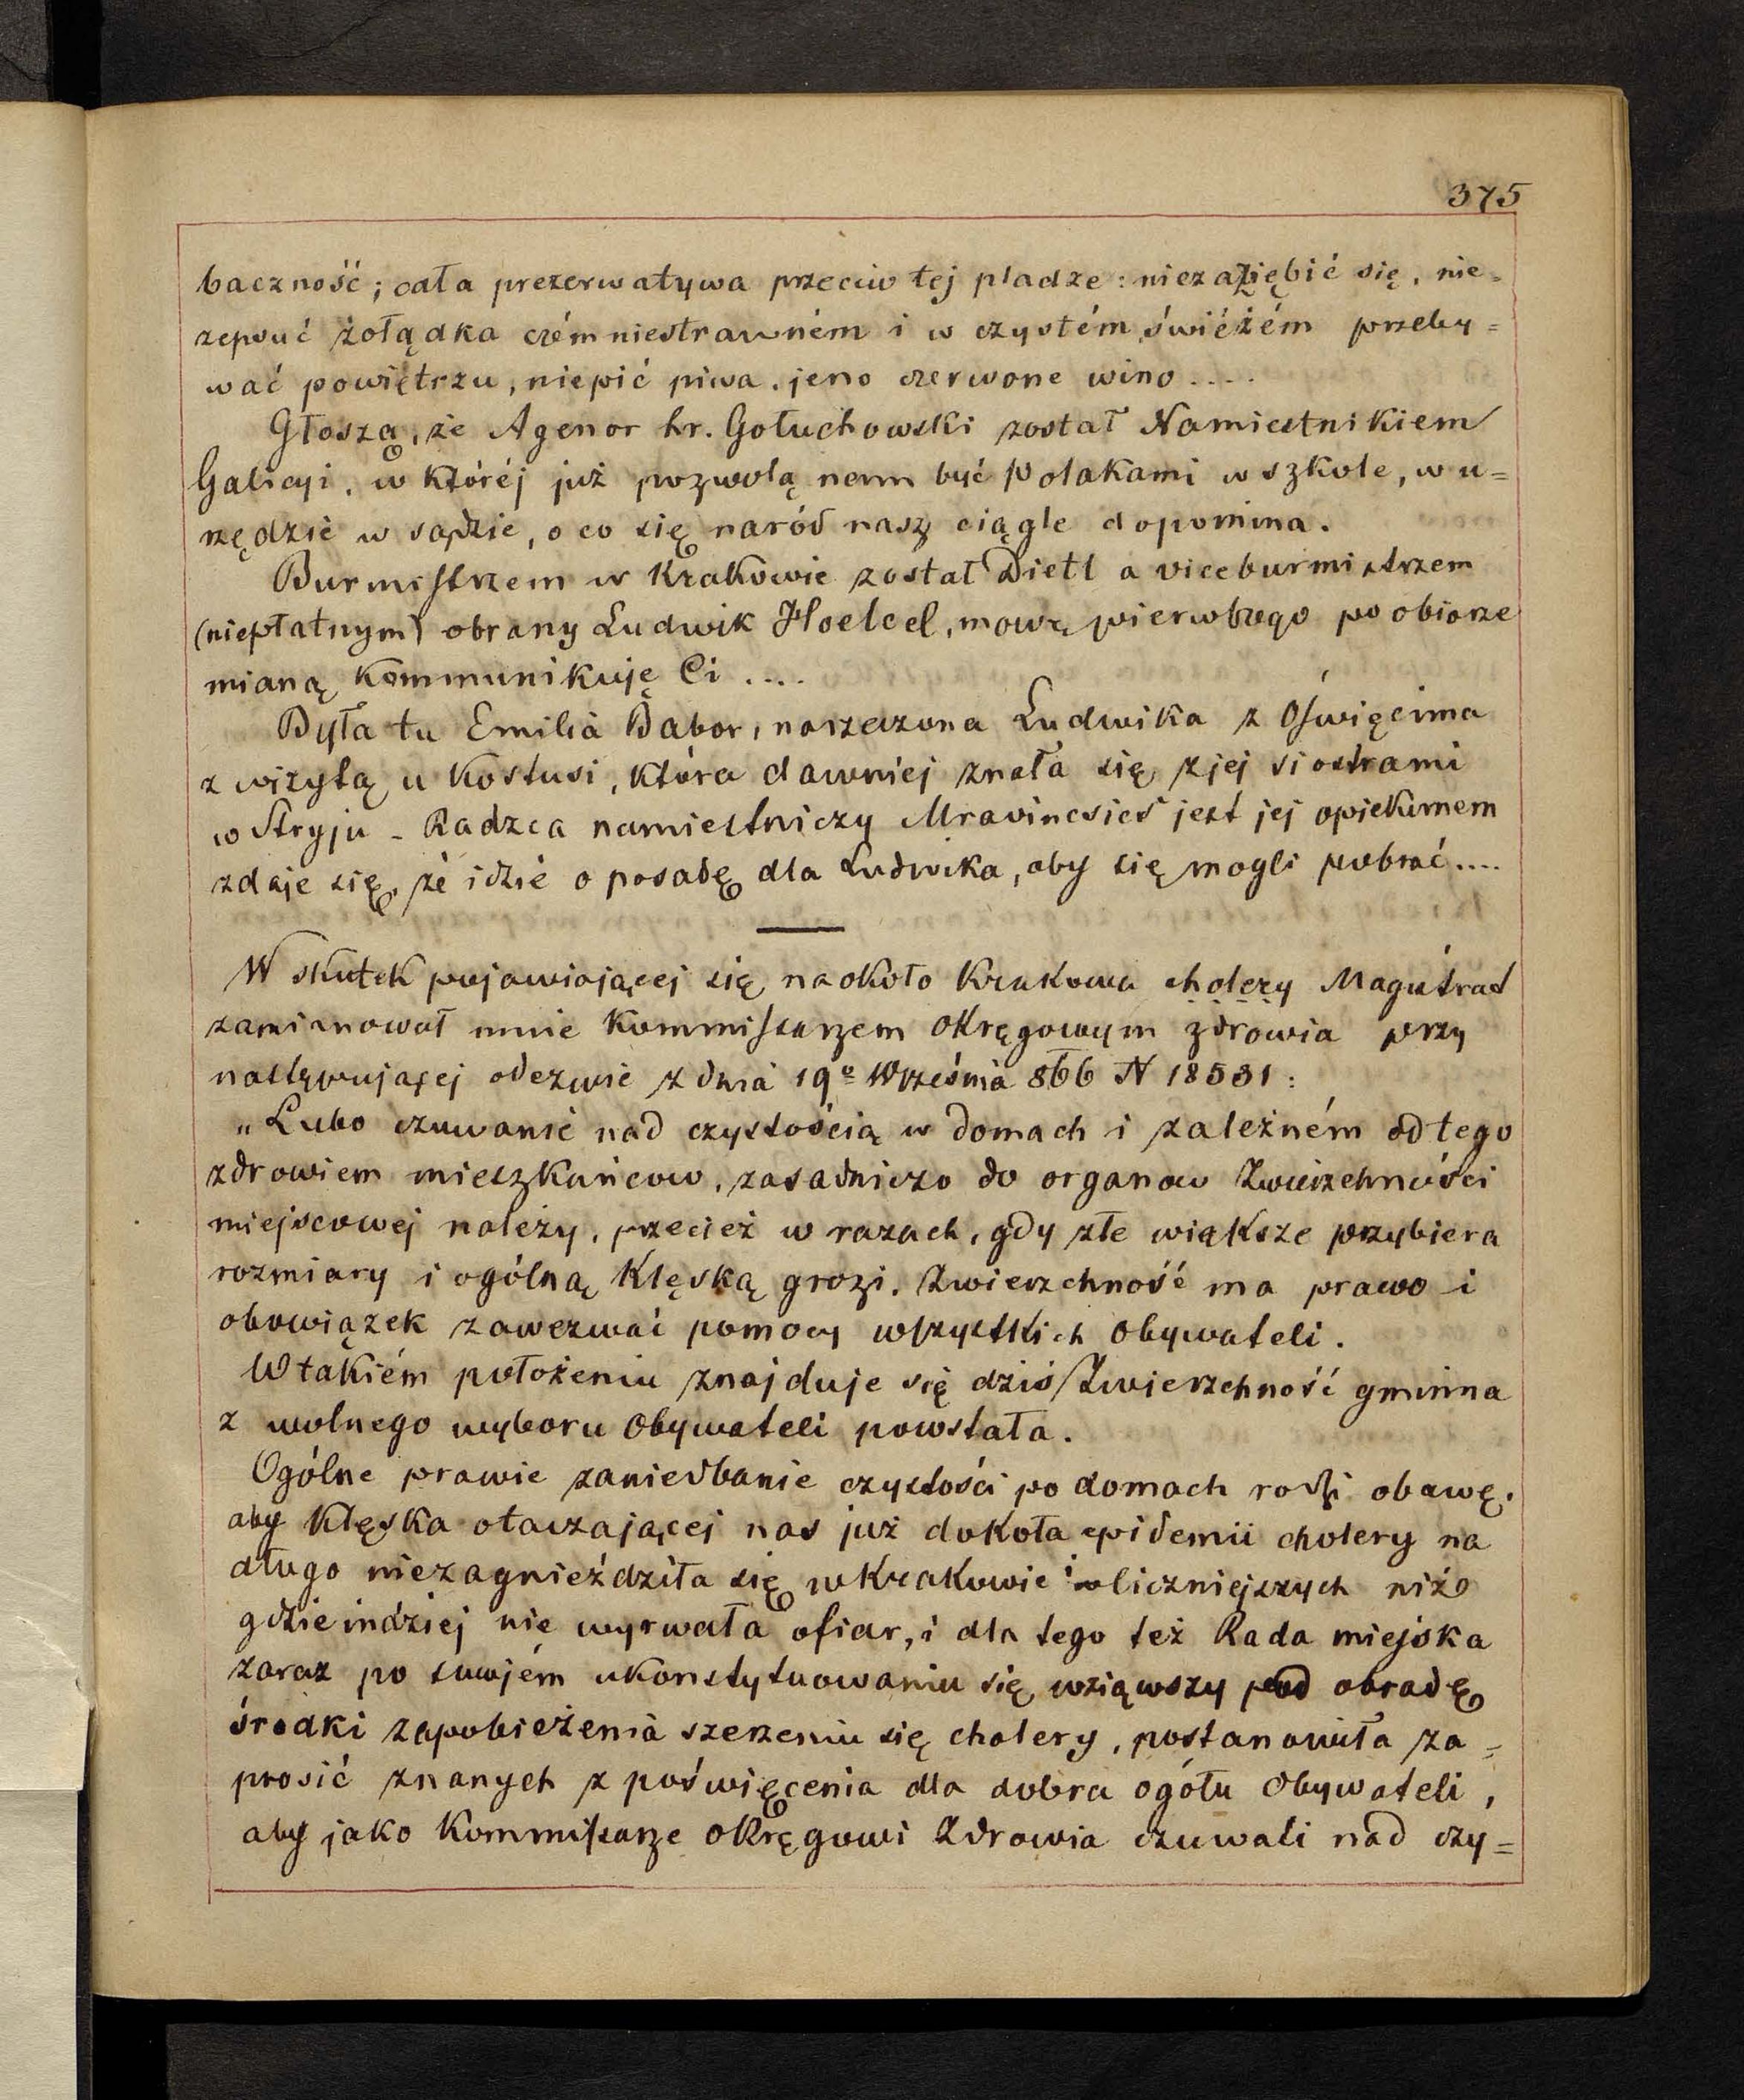 375
baczność; cała prezerwatywa przeciw tej pladze: niezaziębić się, nie=
zepsuć żołądka czém niestrawném i w czystém, świéżém przeby=
wać powiétrzu, niepić piwa, jeno czerwone wino....
Głoszą, że Agenor hr. Gołuchowski został Namiestnikiem
Galicyi, w któréj już pozwolą nam być Polakami w szkole, w u=
rzędzie w sądzie, o co się naród nasz ciągle dopomina.
Burmistrzem w Krakowie został Dietl a viceburmistrzem
(niepłatnym) obrany Ludwik Hoelcel, mowę pierwszego po obiorze
mianą kommunikuję Ci....
Była tu Emilia Babor, narzeczona Ludwika z Oświęcima
z wizytą u Kostusi, która dawniej znała się z jej siostrami
w Stryju - Radzca namiestniczy Mravincsics jest jej opiekunem
zdaje się, że idzie o posadę dla Ludwika, aby się mogli pobrać....
W skutek pojawiającej się naokoło Krakowa cholery Magistrat
zamianował mnie Kommissarzem Okręgowym zdrowia przy
następującej odezwie z dnia 19º Września 866 N 18531:
„Lubo czuwanie nad czystością w domach i zależném od tego
zdrowiem mieszkańcow, zasadniczo do organow Zwierzchności
miejscowej należy, przecież w razach, gdy złe większe przybiera
rozmiary i ogólną klęską grozi, Zwierzchność ma prawo i
obowiązek zawezwać pomocy wszystkich Obywateli.
W takiém położeniu znajduje się dziś Zwierzchność gminna
z wolnego wyboru Obywateli powstała.
Ogólne prawie zaniedbanie czystości po domach rodzi obawę,
aby klęska otaczającej nas już dokoła epidemii cholery na
długo niezagnieździła się w Krakowie i liczniejszych niż
gdzieindziej nie wyrwała ofiar, i dla tego też Rada miejska
zaraz po swojém ukonstytuowaniu się wziąwszy pod obradę
środki zapobieżenia szerzeniu się cholery, postanowiła za=
prosić znanych z poświęcenia dla dobra ogółu Obywateli,
aby jako Kommissarze okręgowi Zdrowia czuwali nad czy=